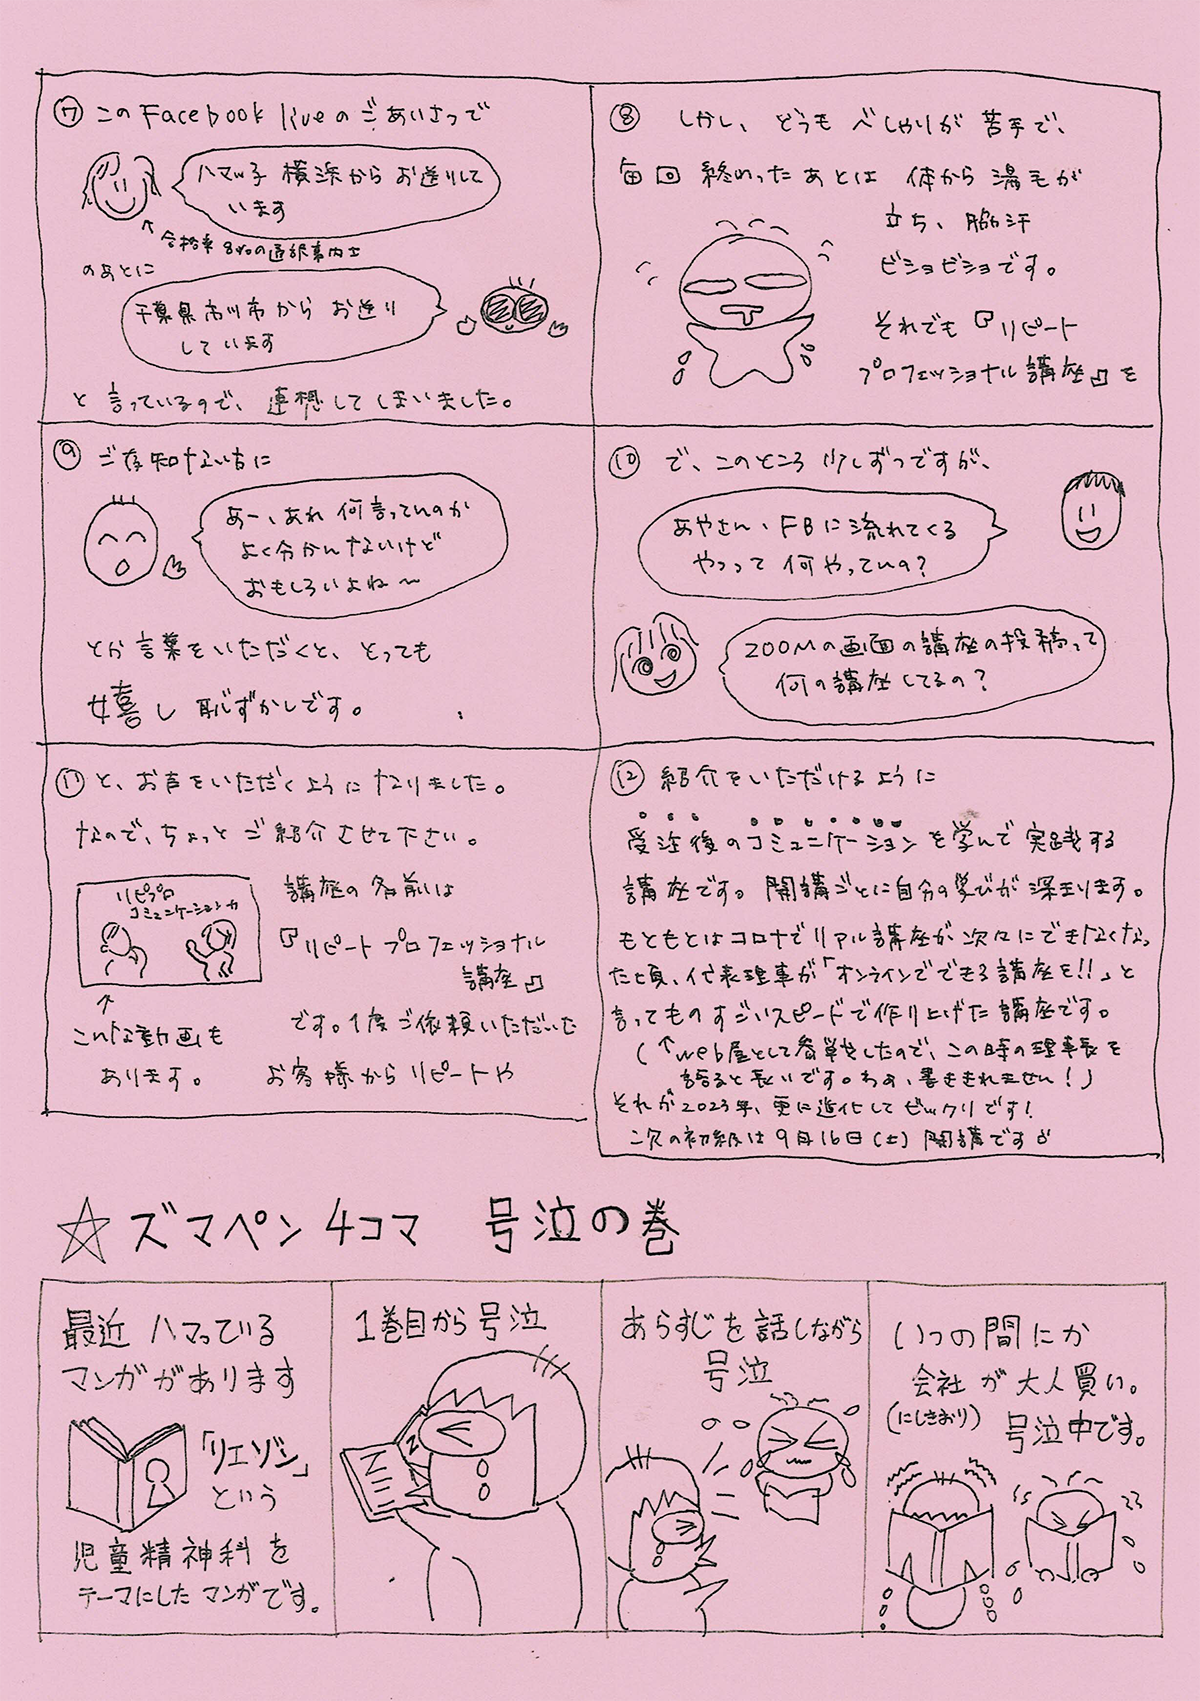 ⑦ このFacebook liveのごあいさつで
ハマッ子 横浜からお送りして
います
↑合格率8%の通訳案内士
のあとに
千葉県市川市からお送り
しています
と言っているので、連想してしまいました。
⑧ しかし、どうもべしゃりが苦手で、
毎回終わったあとは体から湯毛が
立ち、脇汗
ビショビショです。
それでも『リピート
プロフェッショナル講座』を
⑨ ご存知ない方に
あー、あれ何言っていのか
よく分かんないけど
おもしろいよね〜
とか言葉をいただくと、とっても
嬉し恥ずかしです。
⑩ で、このところ少しずつですが、
あやさん、FBに流れてくる
やつって何やっていの?
ZOOMの画面の講座の投稿って
何の講座してるの?
⑪ と、お声をいただくようになりました。
なので、ちょっとご紹介させて下さい。
リピプロ
コミュニケーション力
↑
こんな動画も
あります。
講座の名前は
『リピートプロフェッショナル
講座』
です。1度ご依頼いただいた
お客様からリピートや
⑫ 紹介をいただけるように
受注後のコミュニケーションを学んで実践する
講座です。開講ごとに自分の学びが深まります。
もともとはコロナでリアル講座が次々にできなくなっ
た頃、代表理事が「オンラインでできる講座を!!」と
言ってものすごいスピードで作り上げた講座です。
(↑web屋として参戦したので、この時の理事長を
語ると長いです。わぁ、書ききれません!)
それが2023年、更に進化してビックリです!
次の初級は9月16日(土)開講です
☆ズマペン4コマ 号泣の巻
最近ハマっている
マンガがあります
「リエゾン」
という
児童精神科を
テーマにしたマンガです。
1巻目から号泣
あらすじを話しながら
号泣
いつの間にか
会社が大人買い。
(にしきおり) 号泣中です。